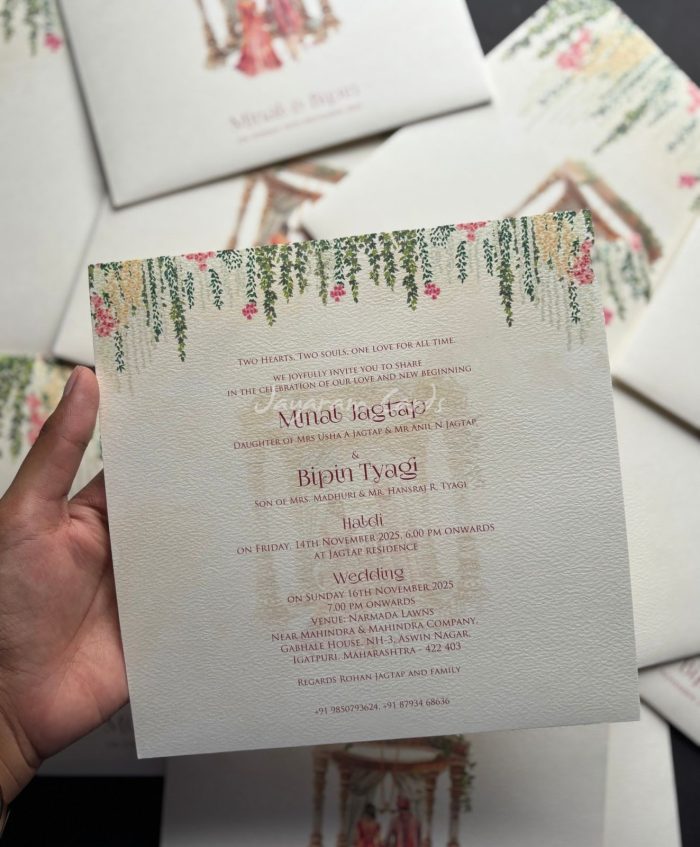 Minal & Bipin
Two Hearts, Two souls, one Love for all time.
we joyfully invite you to share
in the celebration of our love and new beginning
Jayaram Cards
Minal Jagtap
Daughter of Mrs Usha A Jagtap & Mr Anil N Jagtap,
&
Bipin Tyagi
Son of Mrs. Madhuri & Mr. Hansraj R. Tyagi
Haldi
on Friday, 14th November 2025, 6.00 pm onwards
at Jagtap residence
Wedding
on Sunday 16th November 2025
7.00 pm onwards
Venue: Narmada Lawns
Near Mahindra & Mahindra Company,
Gabhale House, NH-3, Aswin Nagar,
Igatpuri, Maharashtra - 422 403
Regards Rohan Jagtap and family
+91 9850793624, +91 87934 68636